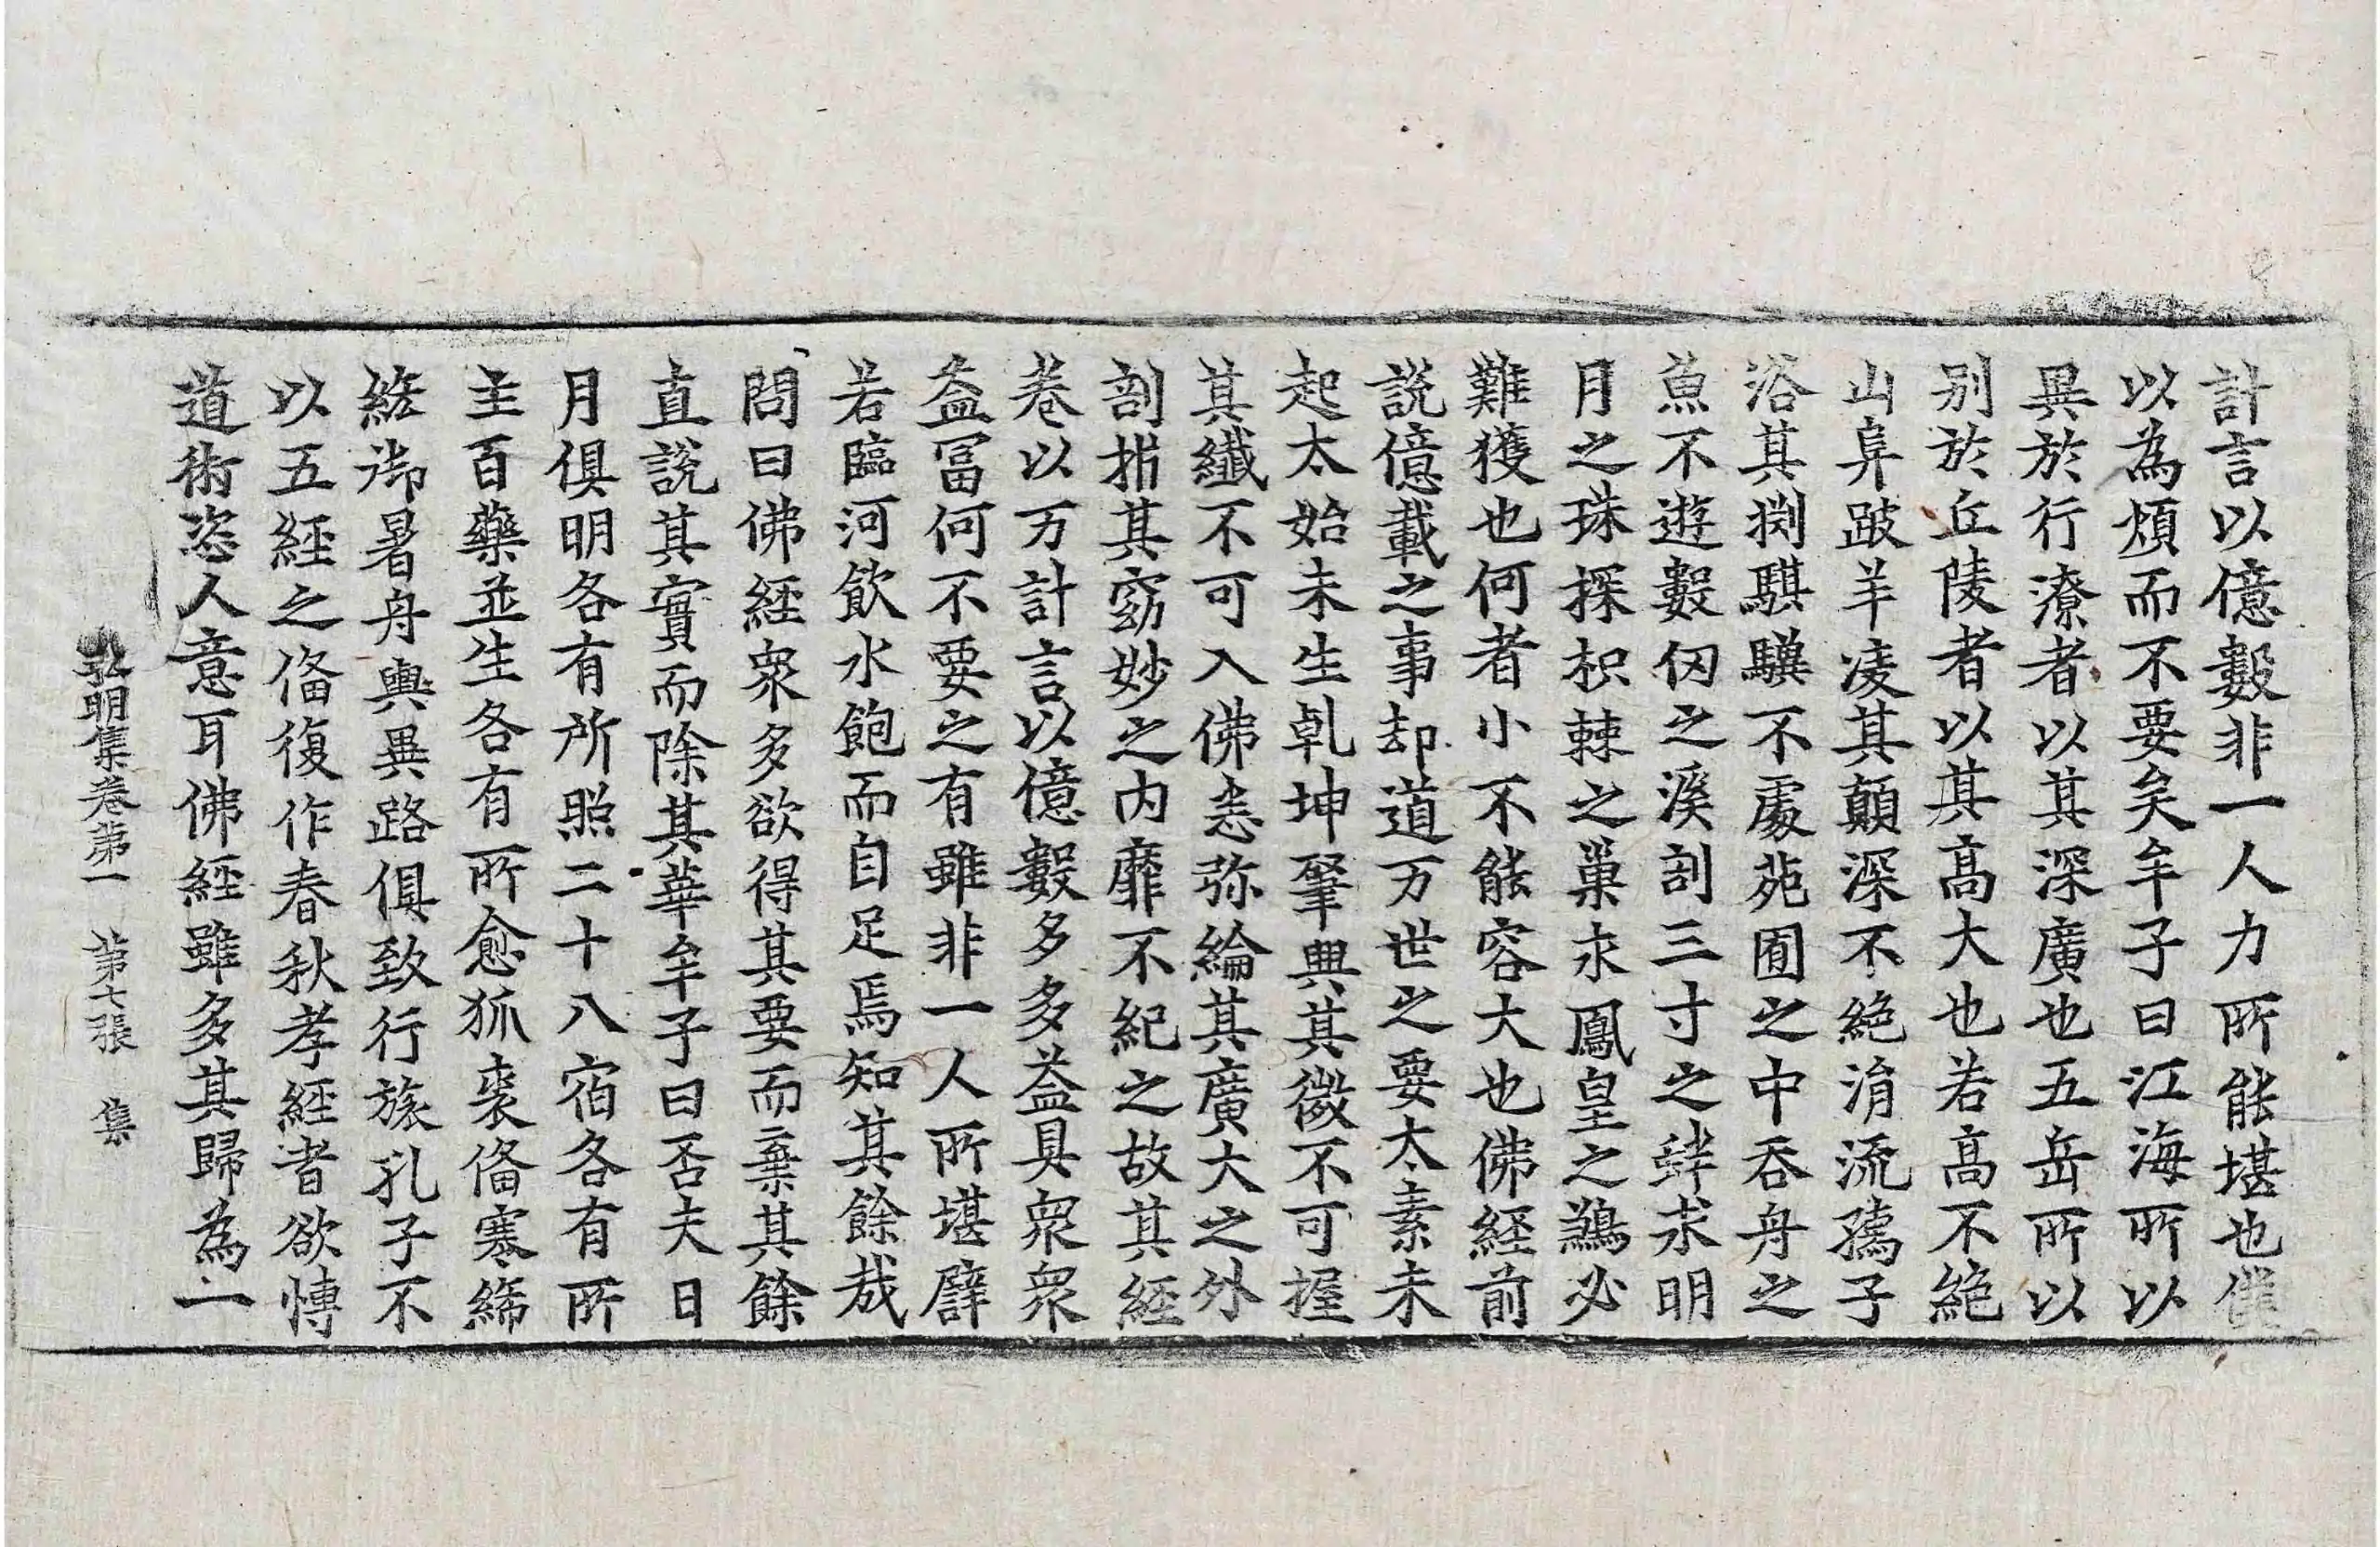 計言以億數非一人力所能堪也僕
以為煩而不要矣牟子曰江海所以
異於行潦者以其深廣也五岳所以
別於丘陵者以其高大也若高不絕
山阜跛羊凌其顛深不絕涓流孺子
浴其渕騏驥不處苑囿之中吞舟之
魚不遊數仞之溪剖三寸之蚌求明
月之珠探枳棘之巢求鳳皇之鶵必
難獲也何者小不能容大也佛經前
說億載之事却道万世之要太素未
起太始未生乹坤肇興其微不可握
其纖不可入佛悉弥綸其廣大之外
剖指其窈妙之內靡不紀之故其經
卷以万計言以億數多多益具衆衆
益冨何不要之有雖非一人所堪譬
若臨河飲水飽而自足焉知其餘哉
問曰佛經衆多欲得其要而棄其餘
直說其實而除其華牟子曰否夫日
月俱明各有所照二十八宿各有所
主百藥並生各有所愈狐裘俻寒絺
綌御暑舟輿異路俱致行旅孔子不
以五經之俻復作春秋孝經者欲博
道術恣人意耳佛經雖多其歸為一
弘明集卷第一 第七張 集